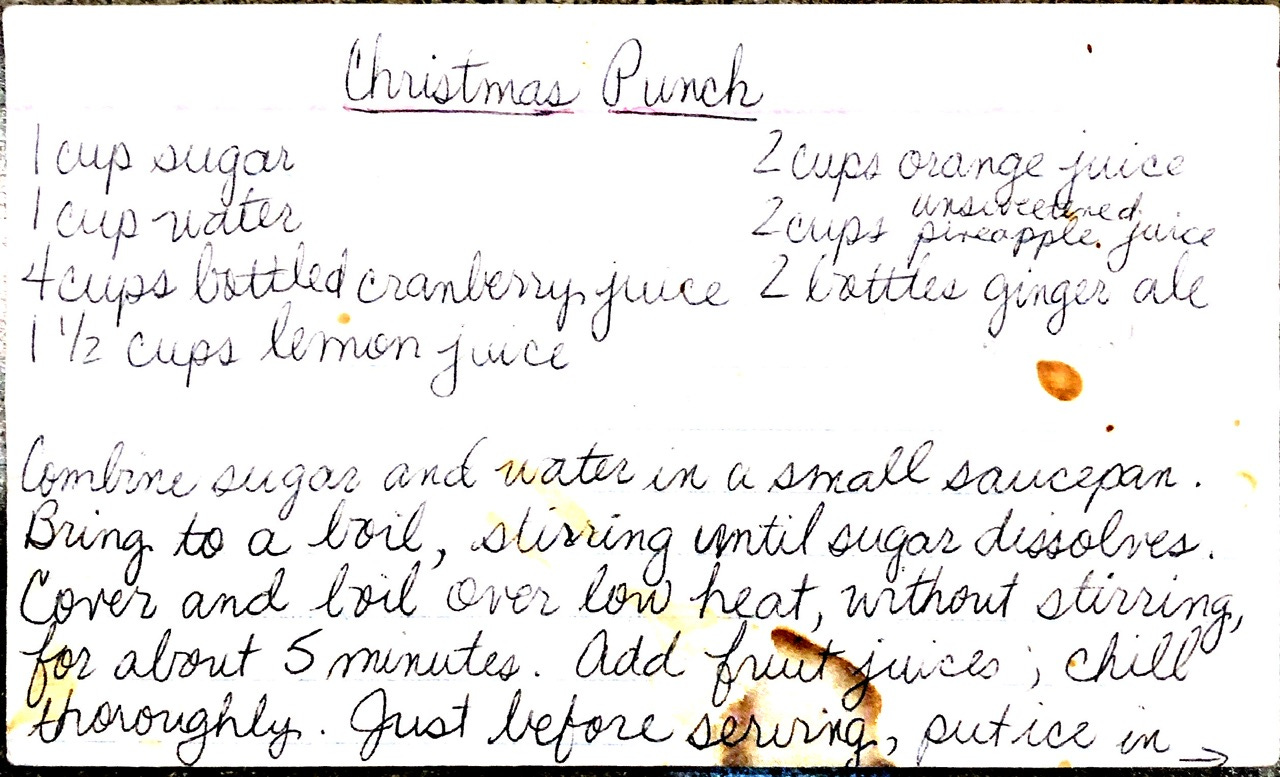 Christmas Punch
1 cup sugar
1 cup water
4 cups bottled cranberry juice
1 1/2 cups lemon juice
2 cups orange juice
2 cups unsweetened pineapple juice
2 bottles ginger ale
Combine sugar and water in a small saucepan.
Bring to a boil, stirring until sugar dissolves.
Cover and boil over low heat, without stirring,
for about 5 minutes. Add fruit juices; chill
thoroughly. Just before serving, put ice in →